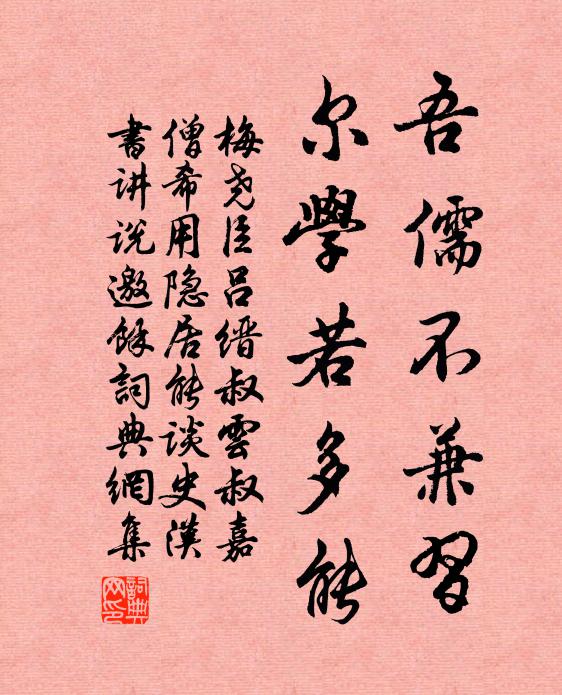 吾儒不兼習
尔學若多能
梅尧臣吕缙叔雲叔嘉
僧希用隐居能谈史漢
書讲说邀餘詞典網集
詞典网印